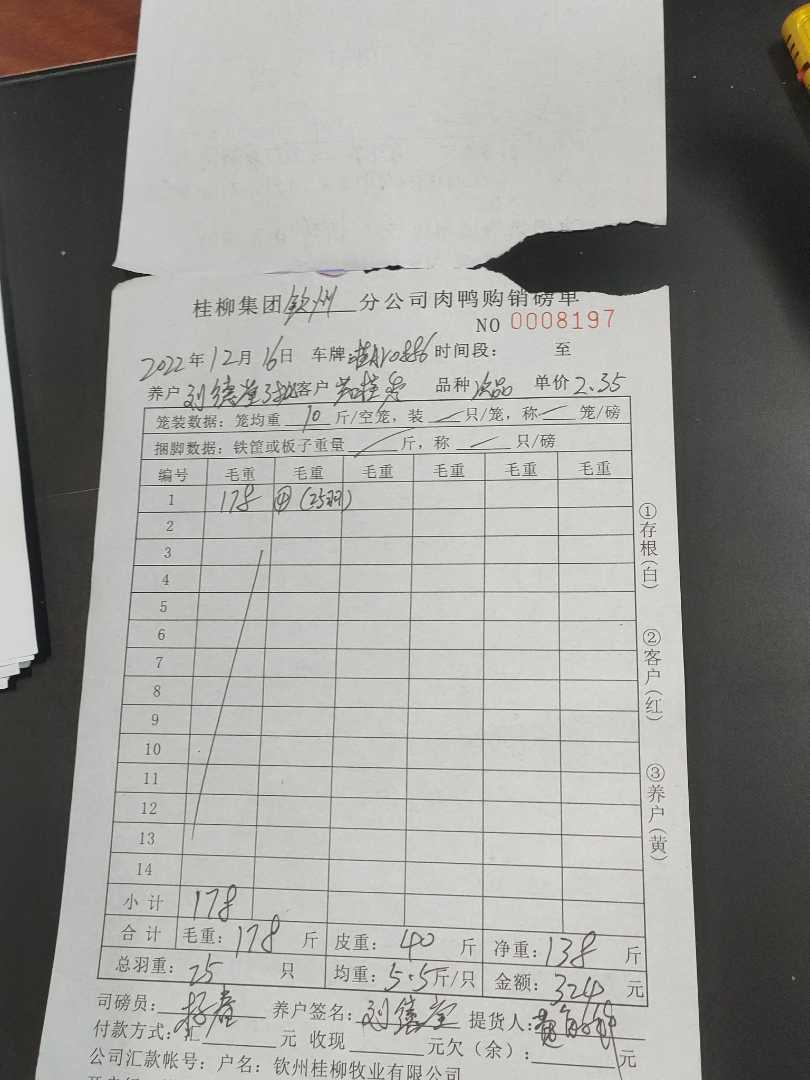 桂柳集团钦州分公司肉鸭购销磅单
NO 0008197
2022年12月16日 车牌: 时间段: 至
养户 刘德 客户 品种 次品 单价 2.35
笼装数据:笼均重 10 斤/空笼,装 只/笼,称 笼/磅
捆脚数据:铁筐或板子重量 斤,称 只/磅
编号 毛重 毛重 毛重 毛重 毛重 毛重
1 178 ④ (25羽)
2
3
4
5
6
7
8
9
10
11
12
13
14
小计 178
合计 毛重:178斤 皮重:40斤 净重:138斤
总羽重:25只 均重:5.5斤/只 金额:324元
司磅员: 养户签名:刘德 提货人:
付款方式:汇 元 收现 元欠(余): 元
公司汇款帐号:户名:钦州桂柳牧业有限公司
①存根(白)
②客户(红)
③养户(黄)